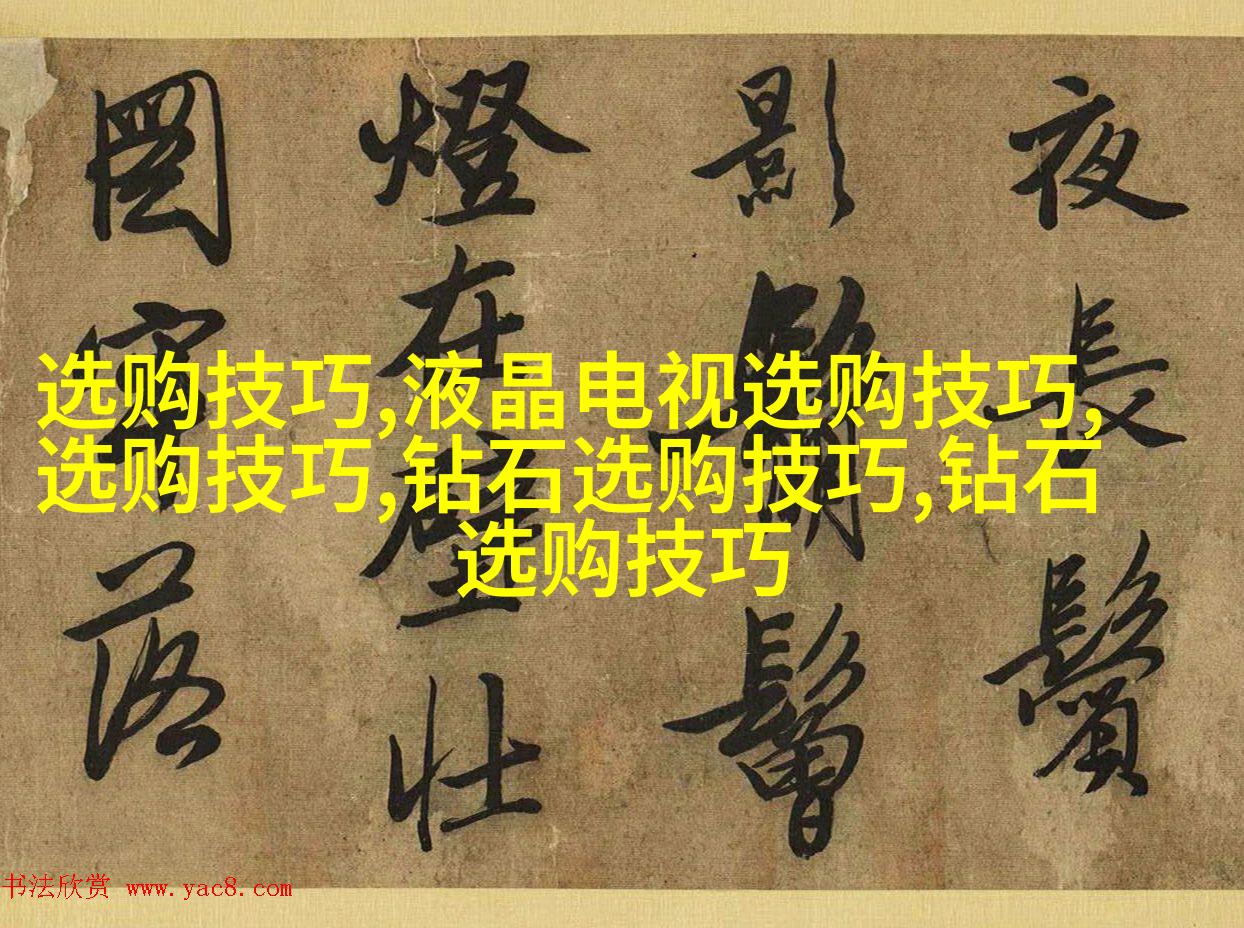 选购技巧,液晶电视选购技巧,
选购技巧,钻石选购技巧,钻石
选购技巧
夜長鬢
影鬙
燈在壁壯
圖落
书法欣赏 www.yac8.com